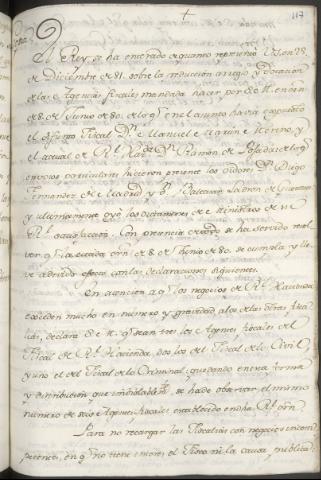 117
El Rey se ha enterado de quanto representó V.S. en 28.
de Diciembre de 81. sobre la reduccion, arreglo y dotacion
de las Agencias fiscales mandada hacer por S.M. en orn.
de 8. de Junio de 80. de lo qe. en el asunto havia expuesto
el difunto Fiscal Dn. Manuel Martin Merino, y
el actual de Rl. Hazda. Dn. Ramon de Posada; de lo qe.
en votos particulares hicieron presente los oidores Dn. Diego
Fernandez de Madrid, y Dn. Baltasar Ladron de Guevara
y ultimamente oyó los dictamenes de Ministros de su
Rl. satisfaccion. Con presencia de todo se ha servido resol-
ver qe. la citada orn. de 8. de Junio de 80. se cumpla y lle-
ve a devido efecto con las declaraciones siguientes.
En atencion a qe. los negocios de Rl. Hacienda
exceden mucho en numero y gravedad a los de las otras fisca-
lias, declara S.M. qe. sean tres los Agentes fiscales del
Fiscal de Rl. Hacienda, dos los del Fiscal de lo Civil,
y uno el del Fiscal de lo Criminal; quedando en esta forma
y distribucion que inviolablemte. se ha de observar el mismo
numero de seis Agentes fiscales establecido en dha. Rl. orn.
Para no recargar las Fiscalias con negocios incom-
petentes, en qe. no tiene interes el Fisco ni la causa publica;